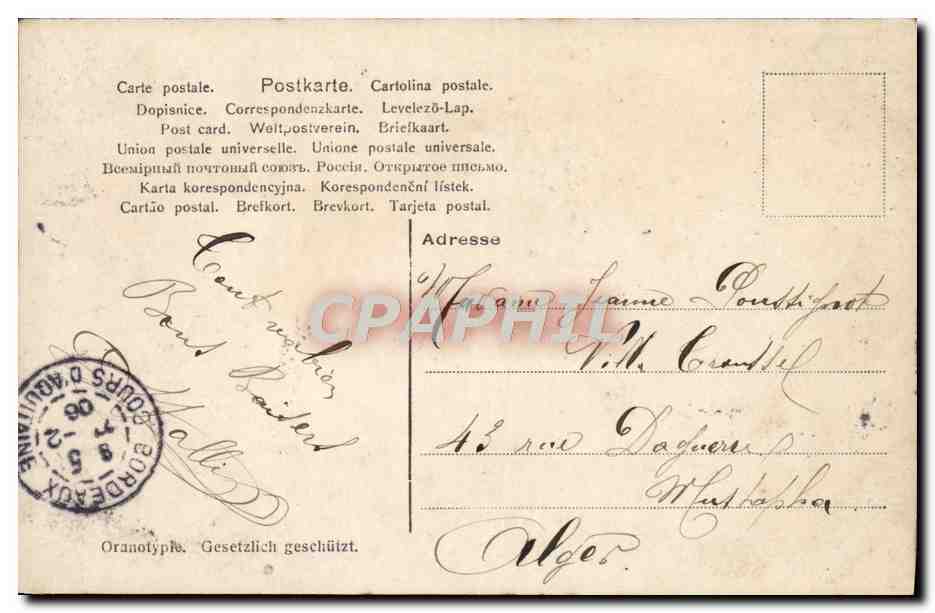 Carte postale. Postkarte. Cartolina postale.
Dopisnice. Correspondenzkarte. Levelező-Lap.
Post card. Weltpostverein. Briefkaart.
Union postale universelle. Unione postale universale.
Всемірный почтовый союзъ. Россія. Открытое письмо.
Karta korespondencyjna. Korespondenční lístek.
Cartão postal. Brefkort. Brevkort. Tarjeta postal.
Tout va bien
Bons Baisers
Adresse
Madame Jeanne
Villa
43 rue Daguerre
Mustapha
Alger
BORDEAUX COURS D'AQUITAINE
5 -2
06
Oranotypie. Gesetzlich geschützt.
CPAPHIL